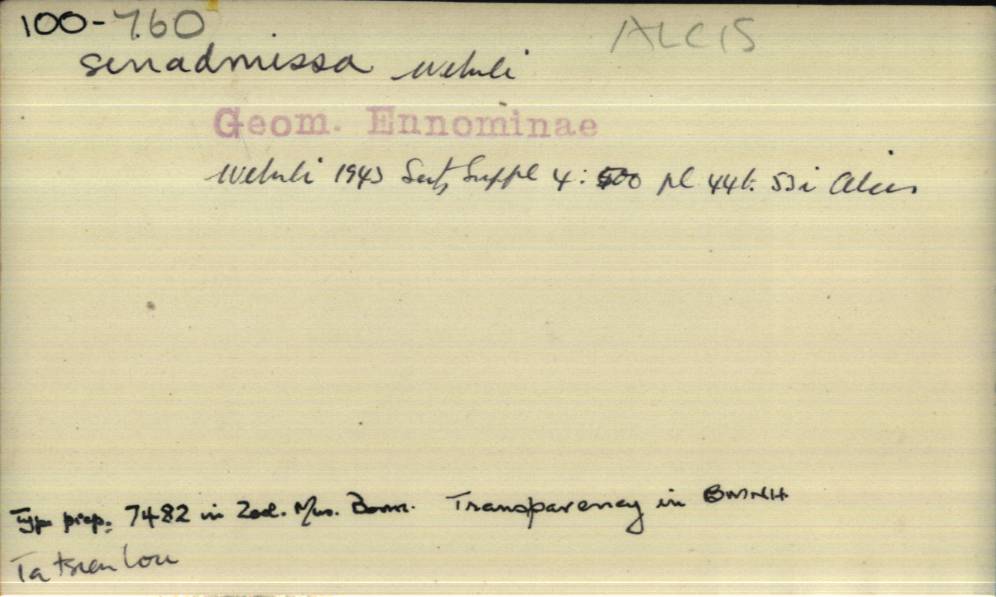 100-760 ALCIS
senadmissa Wehrli
Geom. Ennominae
Wehrli 1943 Seitz Suppl 4: 500 pl 44b. 53i Alcis
Type prep. 7482 in Zool. Mus. Bonn. Transparency in BMNH
Ta tsien lou